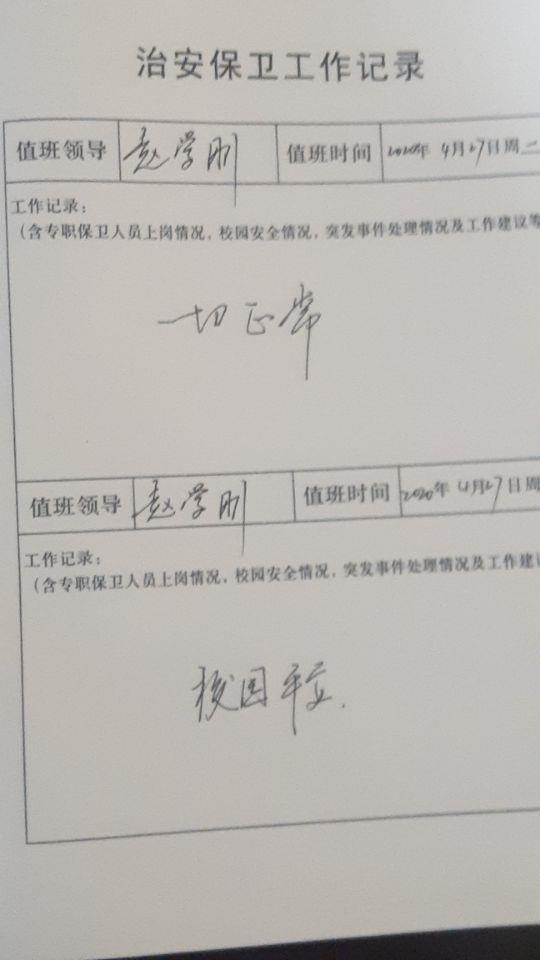 治安保卫工作记录
值班领导 赵学刚 值班时间 2020年 4月27日周二
工作记录：
（含专职保卫人员上岗情况，校园安全情况，突发事件处理情况及工作建议等
一切正常
值班领导 赵学刚 值班时间 2020年 4月27日周
工作记录：
（含专职保卫人员上岗情况，校园安全情况，突发事件处理情况及工作建议
校园平安.